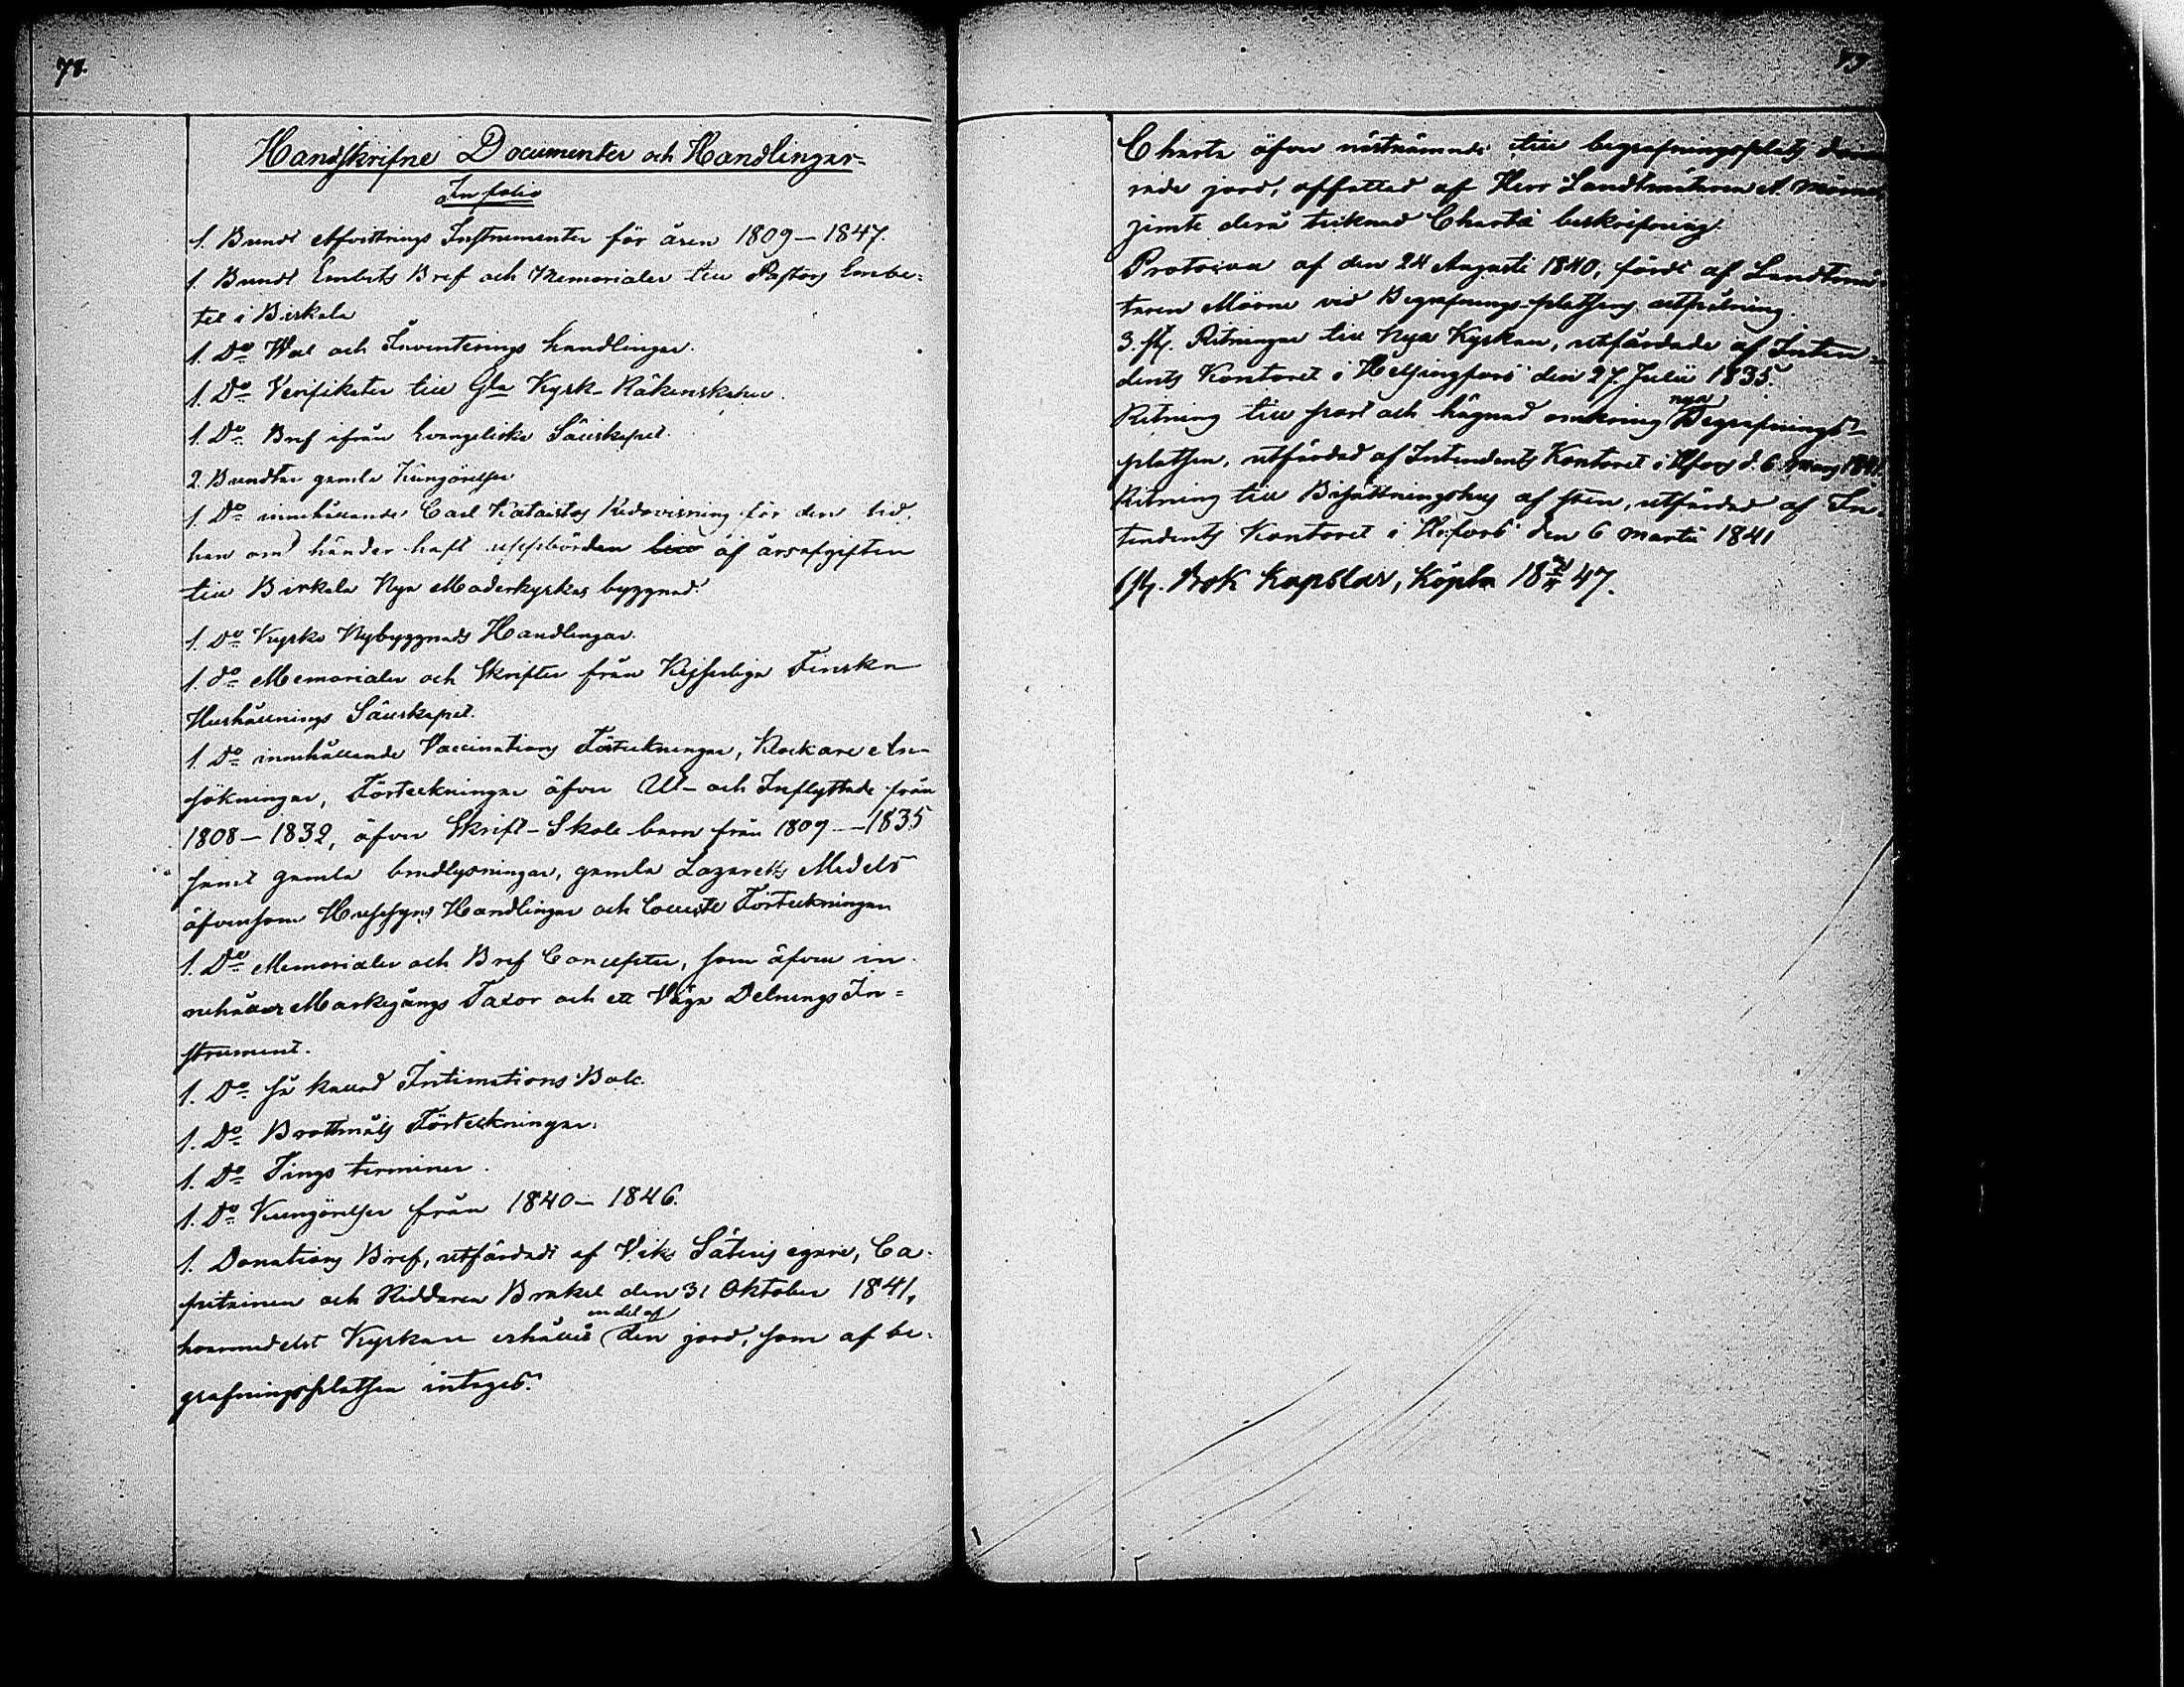 78.
Handskrifne Documenter och Handlingar.
In folio
1. Bundt Afvittrings Instrumenter för åren 1809–1847.
1. Bundt Embets Bref och Memorialer till Pastors Embe-
tet i Birkala
1. Do Wal och Inventerings handlingar.
1. Do Verifikater till Gla Kyrk-Räkenskaper.
1. Do Bref ifrån Evangeliska Sällskapet.
2. Bundtar gamla Kungörelser
1. Do innehållande Carl Kataistos Redovisning för den tid
han om händer haft uppbörden af årsafgiften
till Birkala Nya Moderkyrkas byggnad.
1. Do Kyrko Nybyggnads Handlingar.
1. do Memorialer och Skrifter från Kejserliga Finska
Hushållnings Sällskapet.
1. Do innehållande Vaccinations Förteckningar, Klockare An-
sökningar, Förteckningar öfver Ut- och Inflyttade från
1808–1832, öfver Skrift-Skole barn från 1809–1835
samt gamla lysningar, gamla Lazaretts Medels
äfvensom Husesyns Handlingar och Collecte Förteckningar
1. Do Memorialer och Bref Concepter, som äfven in
nehåller Markegångs Taxor och ett Väga Delnings In=
strument.
1. Do så kallad Intimations Bok.
1. Do Brottmåls Förteckningar.
1. Do Tings terminer.
1. Do Kungörelser från 1840–1846.
1. Donations Bref, utfärdadt af Viks Säteris egare, Ca-
pitainen och Riddaren Brakel den 31 Oktober 1841,
en del af
hvarmedelst Kyrkan erhållit den jord, som af be-
grafningsplatsen intages.
79
Charta öfver nästnämnde till begrafningsplats
rade jord, affattad af Herr Landtmätaren A. Mörne
jemte derå tecknad Charta beskrifning.
Protocoll af den 24 Augusti 1840, fördt af Landtmä-
taren Mörne vid Begrafnings-platsens utstakning.
3. st. Ritningar till Nya Kyrkan, utfärdade af Inten=
dents Kontoret i Helsingfors den 27. Julii 1835.
nya
Ritning till port och hägnad omkring Begrafnings-
platsen, utfärdad af Intendents Kontoret i Hfors d. 6 Mars 1841
Ritning till Bisättningshus af sten, utfärdad af In-
tendents Kontoret i H:fors den 6 Martii 1841
1 st. Bok Kapslar, Köpta 18 47.